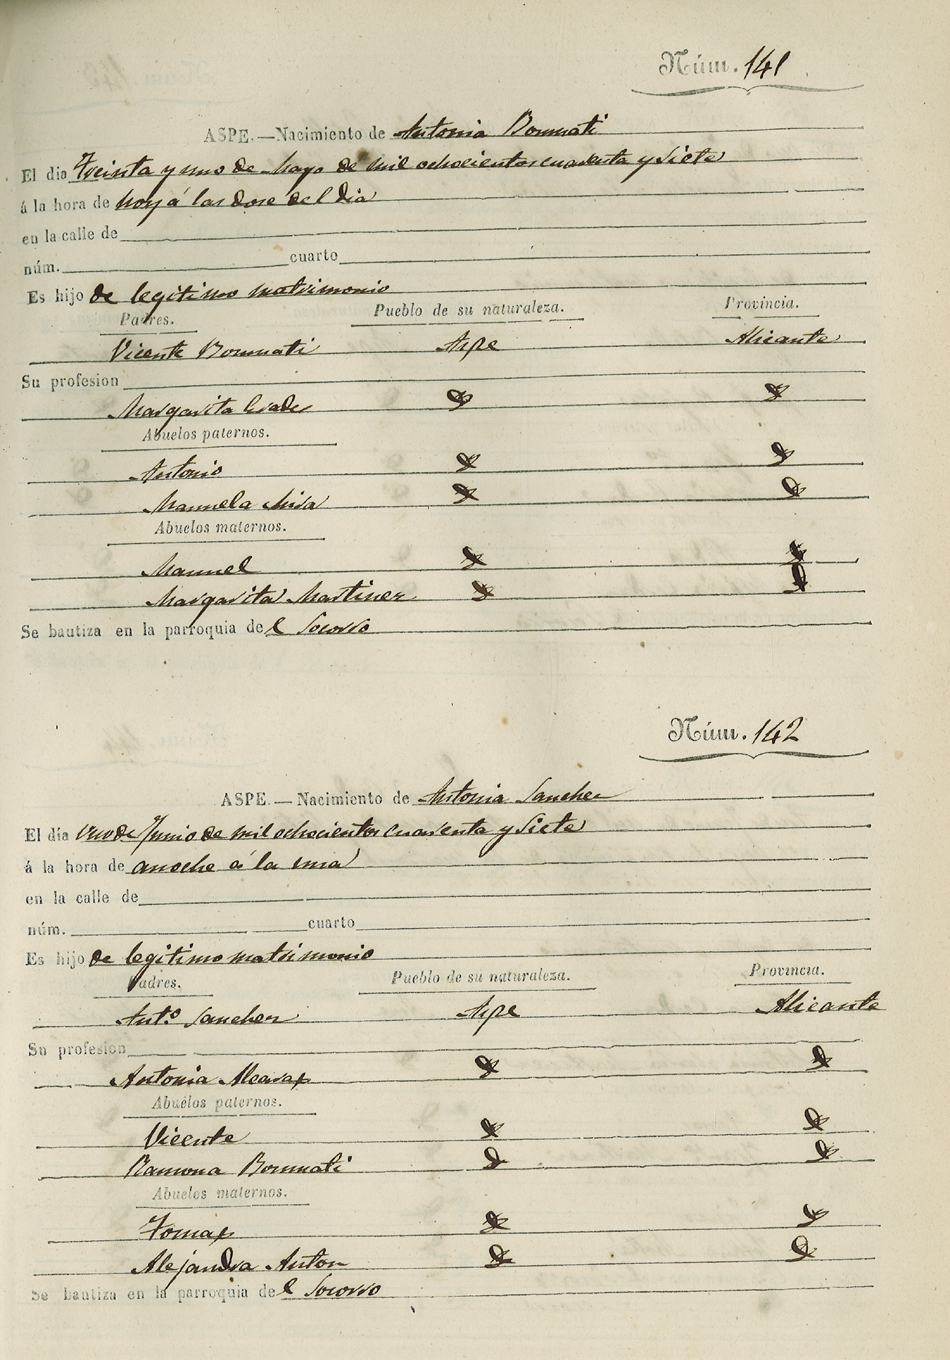 Núm. 141
ASPE.—Nacimiento de Antonia Bonmati
El dia Treinta y uno de Mayo de mil ochocientos cuarenta y siete
á la hora de hoy á las dose del Dia
en la calle de
núm. cuarto
Es hijo de legitimo matrimonio
Padres. Pueblo de su naturaleza. Provincia.
Vicente Bonmati Aspe Alicante
Su profesion
Margarita
Abuelos paternos.
Antonio
Manuela Mira
Abuelos maternos.
Manuel
Margarita Martinez
Se bautiza en la parroquia del Socorro
Núm. 142
ASPE.—Nacimiento de Antonia Sanchez
El día uno de Junio de mil ochocientos cuarenta y siete
á la hora de anoche á la una
en la calle de
núm. cuarto
Es hijo de legitimo matrimonio
Padres. Pueblo de su naturaleza. Provincia.
Ant.º Sanchez Aspe Alicante
Su profesion
Antonia Alcaraz
Abuelos paternos.
Vicente
Ramona Bonmati
Abuelos maternos.
Tomas
Alejandra Anton
Se bautiza en la parroquia del Socorro